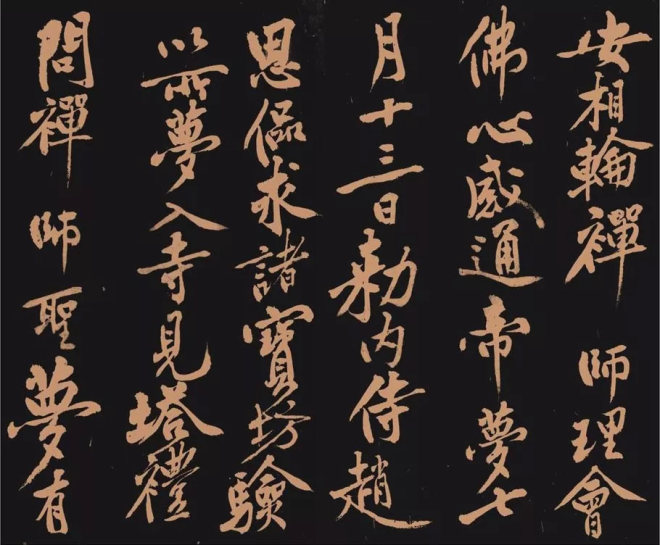 安相輪禪師理會
佛心感通帝夢七
月十三日勑內侍趙
思侃求諸寶坊驗
以所夢入寺見塔禮
問禪師聖夢有